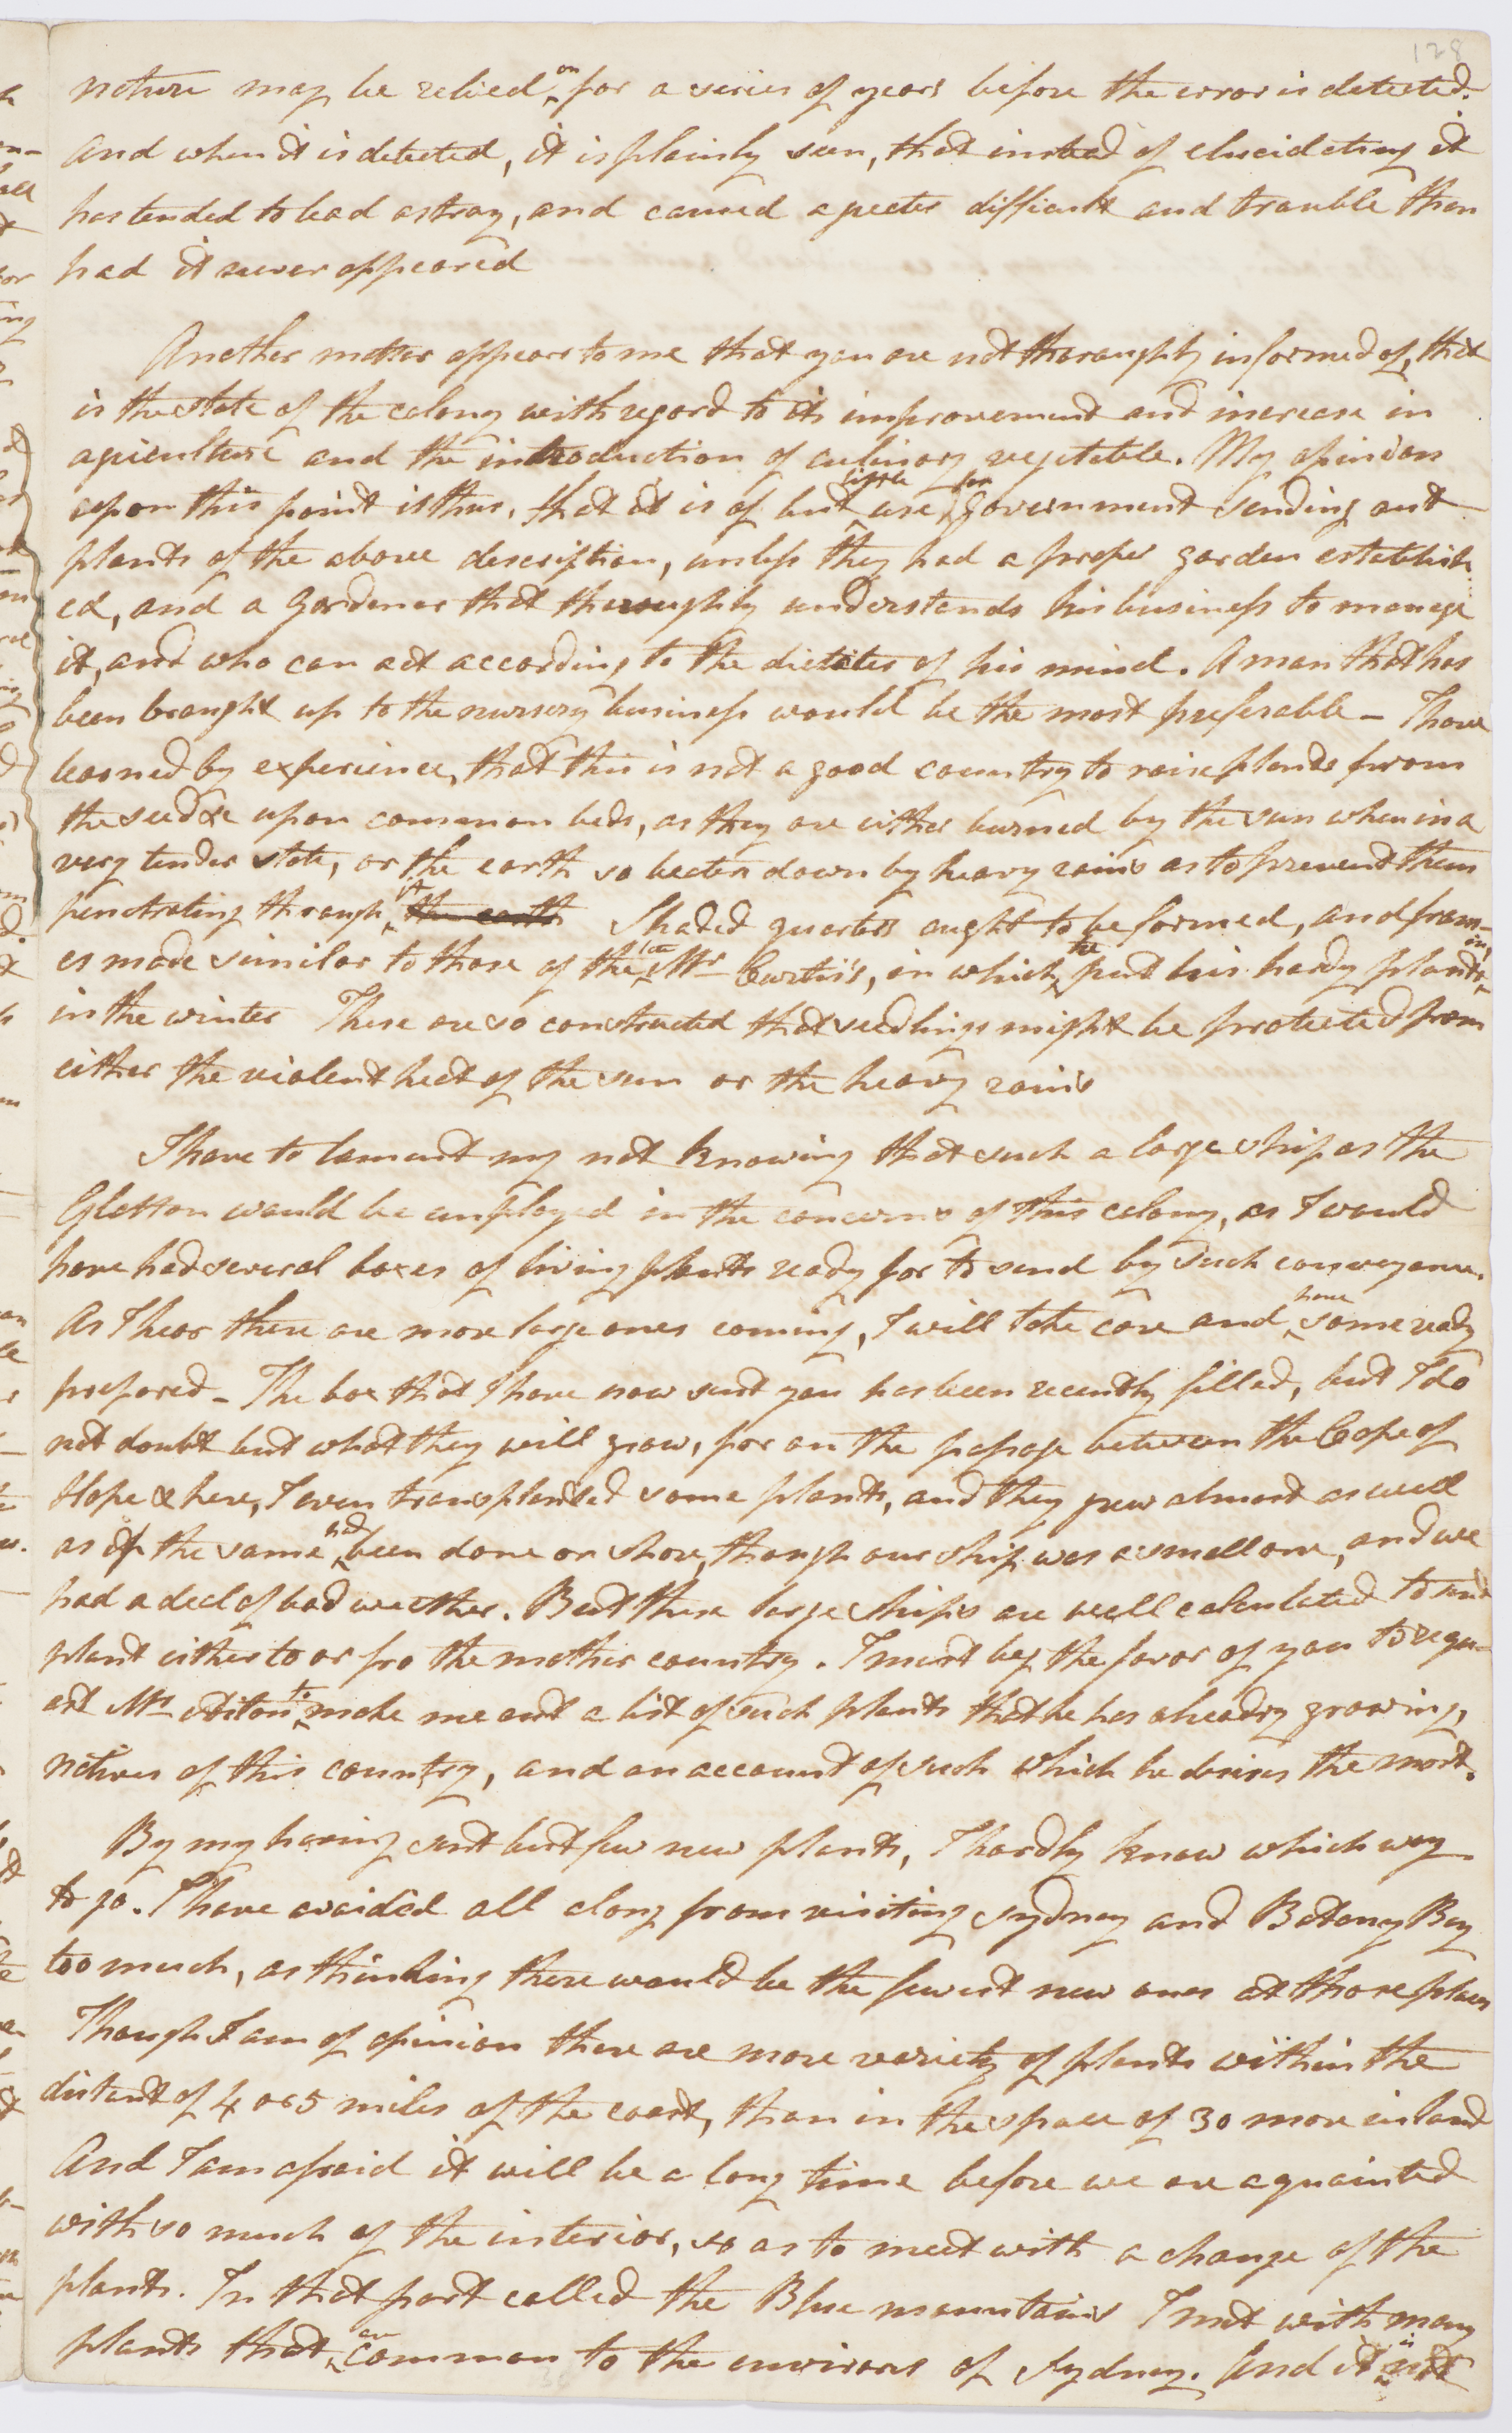 128
nature may be relied on for a series of years before the error is detected.
And when it is detected, it is plainly seen, that instead of elucidating it
has tended to lead astray, and caused a greater difficult and trouble than
had it never appeared
Another matter appears to me that you are not thoroughly informed of, that
is the state of the colony with regard to its improvement and increase in
agriculture and the introduction of culinary vegetable. My opinion
upon this point is thus, that it is of but little use for Government sending out
plants of the above description, unless they had a proper garden establish
ed, and a Gardener that thoroughly understands his business to manage
it, and who can act according to the dictates of his mind. A man that has
been brought up to the nursery business would be the most preferable - I have
learned by experience, that this is not a good country to raise plants from
the seed &c upon common beds, as they are either burned by the sun when in a
very tender state, or the earth so beaten down by heavy rains as to prevent them
penetrating through it the earth Shaded quarters ought to be formed, and fram-
es made similar to those of the late Mr Curtis's, in which he put his hardy plants in
in the winter These are so constructed that seedlings might be protected from
either the violent heat of the sun or the heavy rains
I have to lament my not knowing that such a large ship as the
Glatton would be employed in the concerns of this colony, as I would
have had several boxes of living plants ready for to send by such conveyance.
As I hear there are more large ones coming, I will take care and have some ready
prepared - The box that I have now sent you has been recently filled, but I do
not doubt but what they will grow, for on the passage between the Cape of
Hope & here, I even transplanted some plants, and they grew almost as well
as if the same had been done on shore, though our ship was a small one, and we
had a deal of bad weather. But these large ships are well calculated to send
plant either to or fro the mother country. I must beg the favor of you to requ-
est Mr Aiton to make me out a list of such plants that he has already growing,
natives of this country, and an account of such which he desires the most.
By my having sent but few new plants, I hardly know which way
to go. I have avoided all along from visiting Sydney and Botany Bay
too much, as thinking there would be the fewest new ones at those places
Though I am of opinion there are more variety of plants within the
distant of 4 or 5 miles of the coast, than in the space of 30 more inland
And I am afraid it will be a long time before we are aquainted
with so much of the interior, so as to meet with a change of the
plants. In that part called the Blue mountains I met with many
plants that are common to the environs of Sydney. And it is not